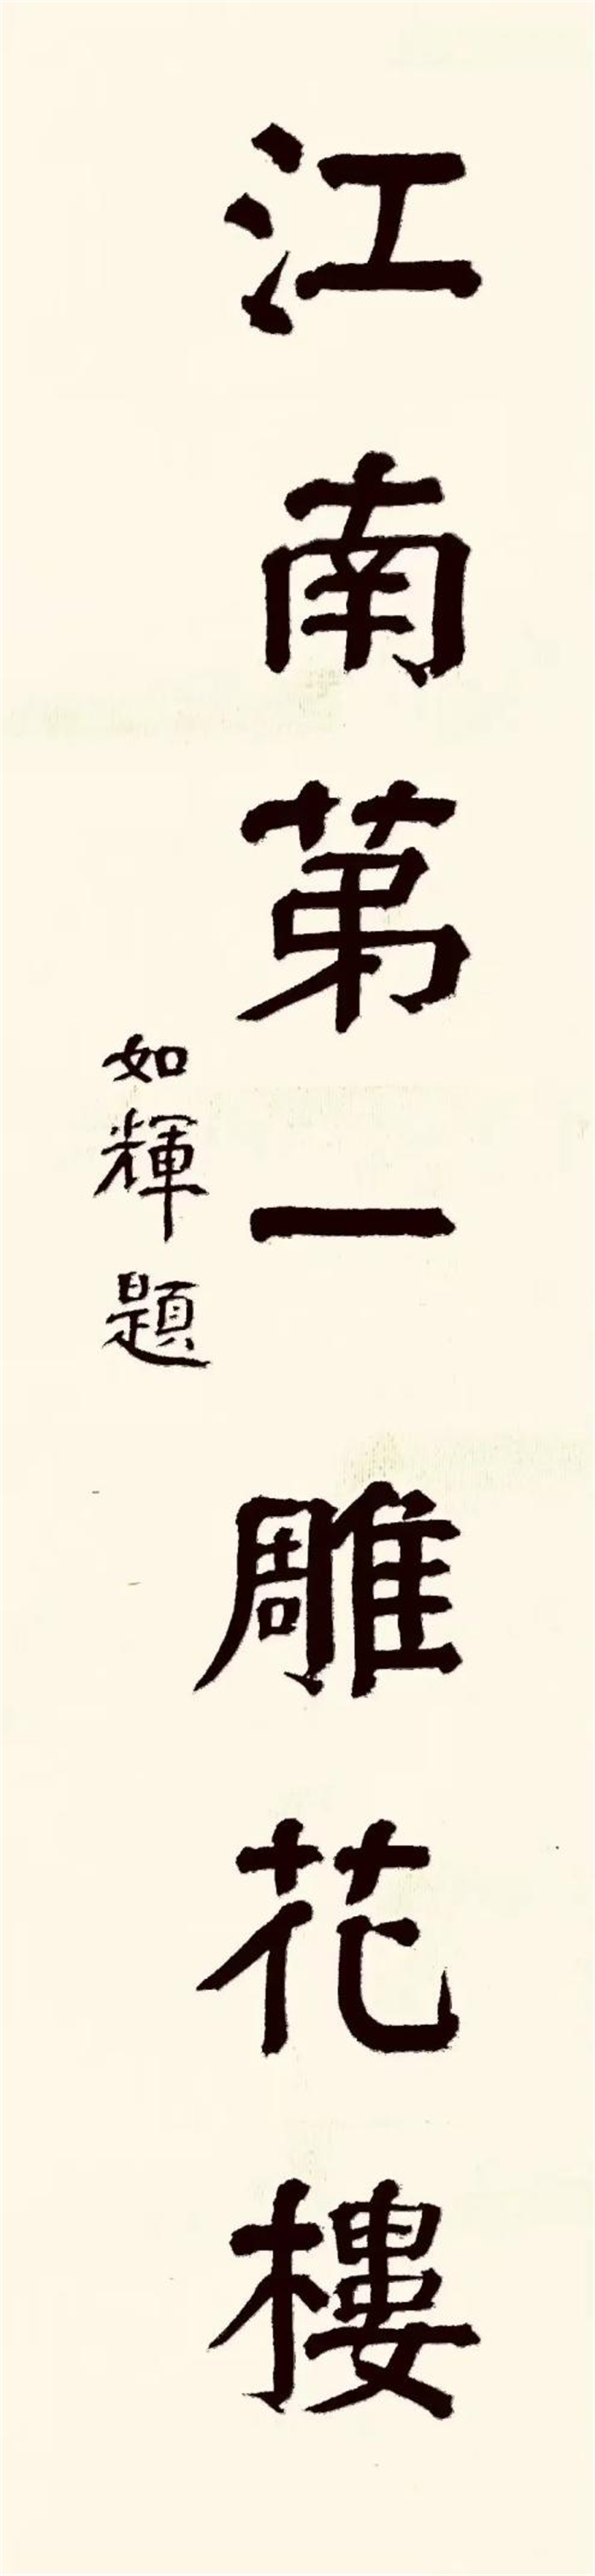 江南苐一雕花樓
如輝題